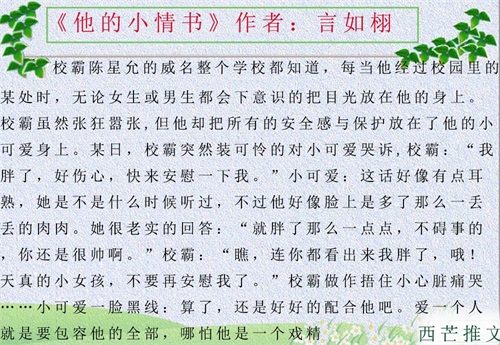 《他的小情书》作者：言如栩
校霸陈星允的威名整个学校都知道，每当他经过校园里的
某处时，无论女生或男生都会下意识的把目光放在他的身上。
校霸虽然张狂嚣张,但他却把所有的安全感与保护放在了他的小
可爱身上。某日，校霸突然装可怜的对小可爱哭诉,校霸：“我
胖了，好伤心，快来安慰一下我。”小可爱：这话好像有点耳
熟，她是不是什么时候听过，不过他好像脸上是多了那么一丢
丢的肉肉。她很老实的回答：“就胖了那么一点点，不碍事的
，你还是很帅啊。”校霸：“瞧，连你都看出来我胖了，哦！
天真的小女孩，不要再安慰我了。”校霸做作捂住小心脏痛哭
……小可爱一脸黑线：算了，还是好好的配合他吧。爱一个人
就是要包容他的全部，哪怕他是一个戏精
西芒推文